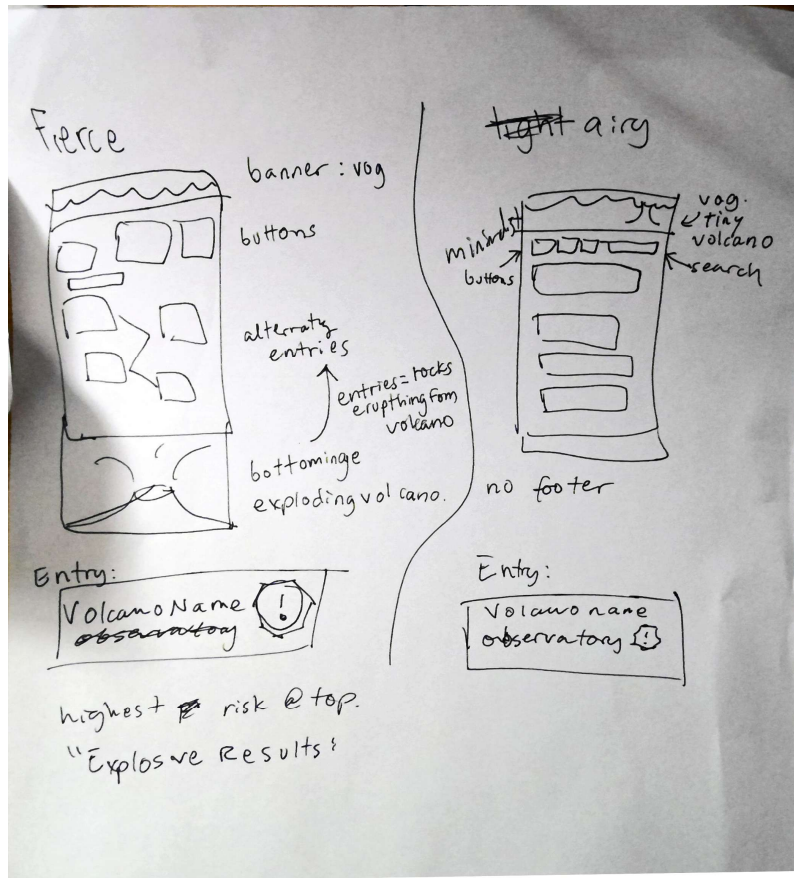 Fierce
banner : vog
buttons
alternatig
entries
entries = rocks
erupthing from
volcano
bottom image
exploding volcano.
Entry:
Volcano Name
observatory
!
highest risk @ top.
"Explosive Results"
light airy
vog.
tiny
volcano
minimalist
buttons
search
no footer
Entry:
Volcano name
observatory !